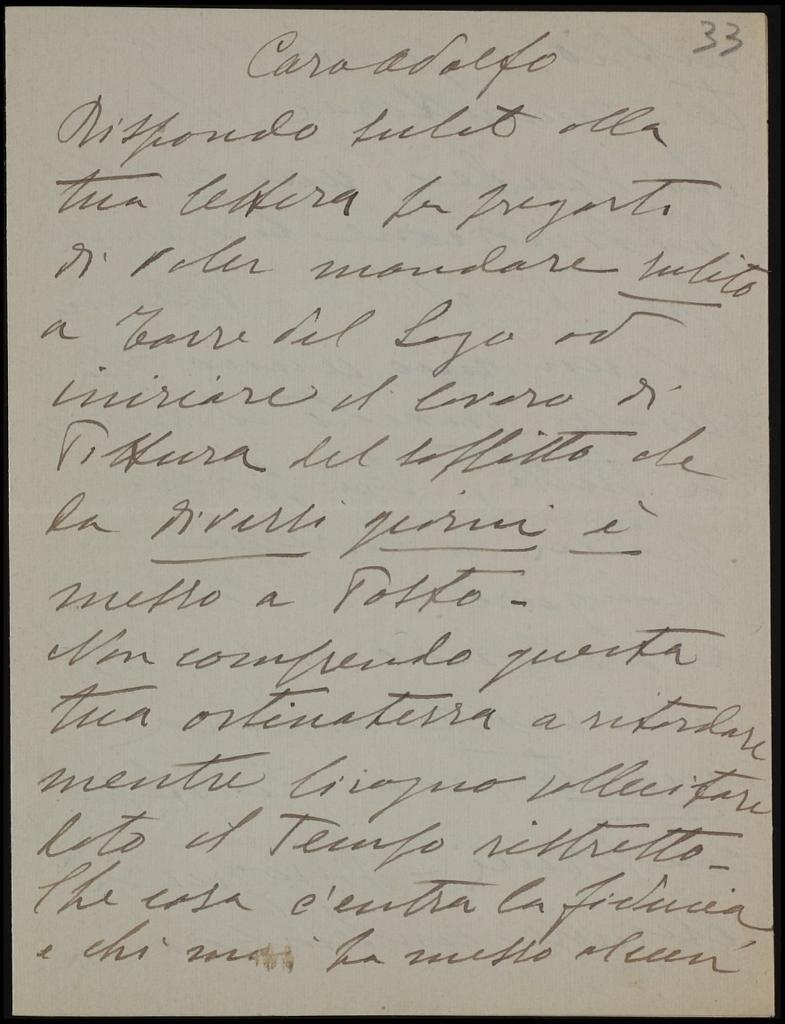 33
Caro Adolfo
Rispondo subito alla
tua lettera per pregarti
di voler mandare subito
a Torre del Lago ad
iniziare il lavoro di
Pittura del soffitto che
da diversi giorni è
messo a Posto -
Non comprendo questa
tua ostinatezza a ritardare
mentre bisogna sollecitare
dato il Tempo ristretto -
Che cosa c'entra la fiducia
e chi mai ha messo alcun